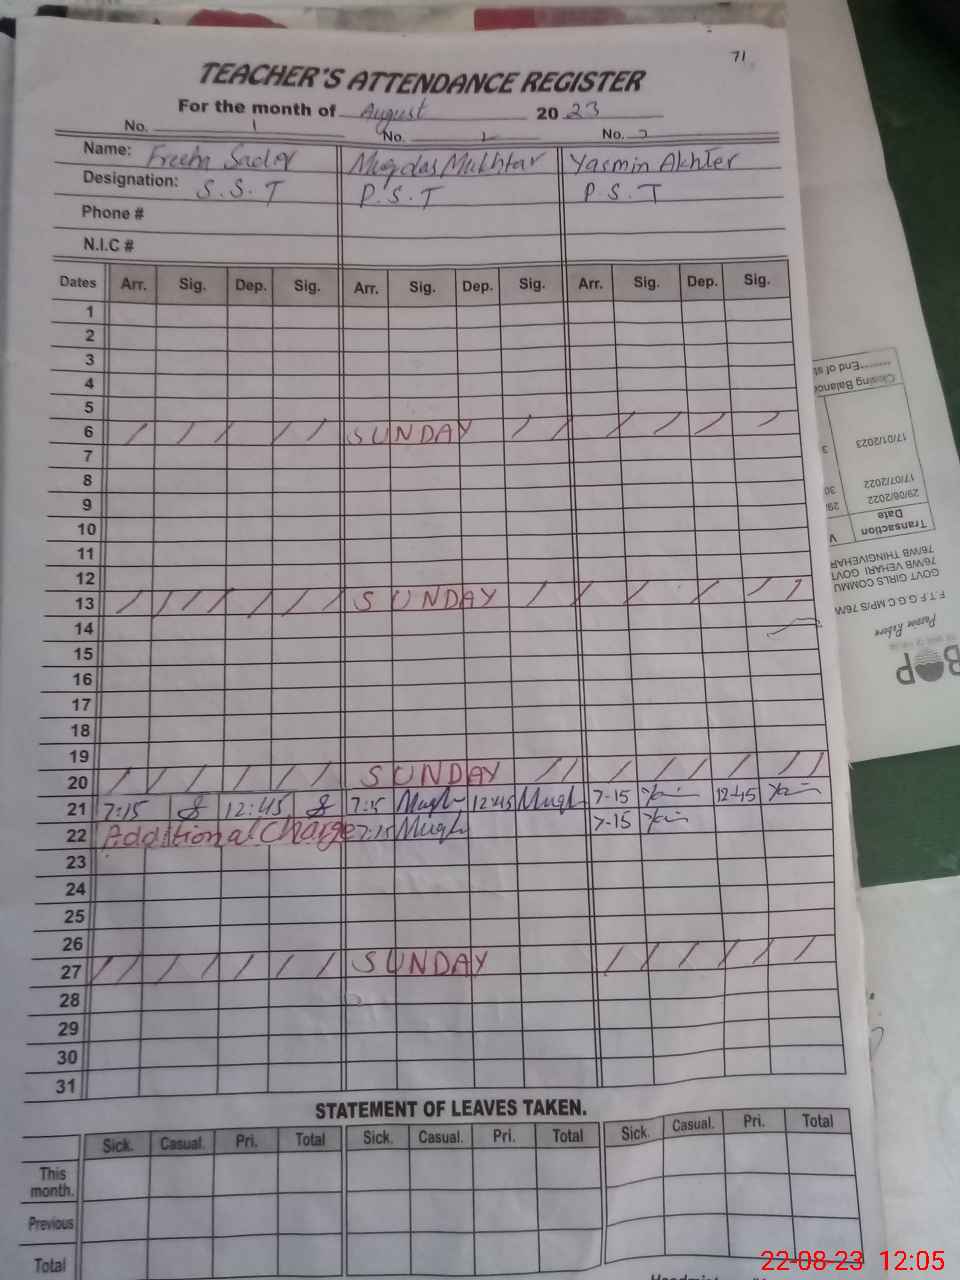 71
TEACHER'S ATTENDANCE REGISTER
For the month of August 2023
No. 1 No. 2 No. 3
Name: Freeha Mugdas Mukhtar Yasmin Akhter
Designation: S.S.T P.S.T P.S.T
Phone #
N.I.C #
Dates Arr. Sig. Dep. Sig. Arr. Sig. Dep. Sig. Arr. Sig. Dep. Sig.
1
2
3
4
5
6 SUNDAY
7
8
9
10
11
12
13 SUNDAY
14
15
16
17
18
19
20 SUNDAY
21 7:15 12:45 7:15 Mugh 12:45 Mugh 7-15 12-45
22 Additional Charge 7:15 Mugh 7-15
23
24
25
26
27 SUNDAY
28
29
30
31
STATEMENT OF LEAVES TAKEN.
Sick. Casual. Pri. Total Sick. Casual. Pri. Total Sick. Casual. Pri. Total
This month.
Previous
Total
BOP
F.T.F G.G.C MP/S 76/W
GOVT GIRLS COMMU
76/WB VEHARI GOVT
76/WB THINGIVEHAR
Transaction Date
29/06/2022 29/
17/07/2022 30
17/01/2023 3
Closing Balance
End of st
22-08-23 12:05